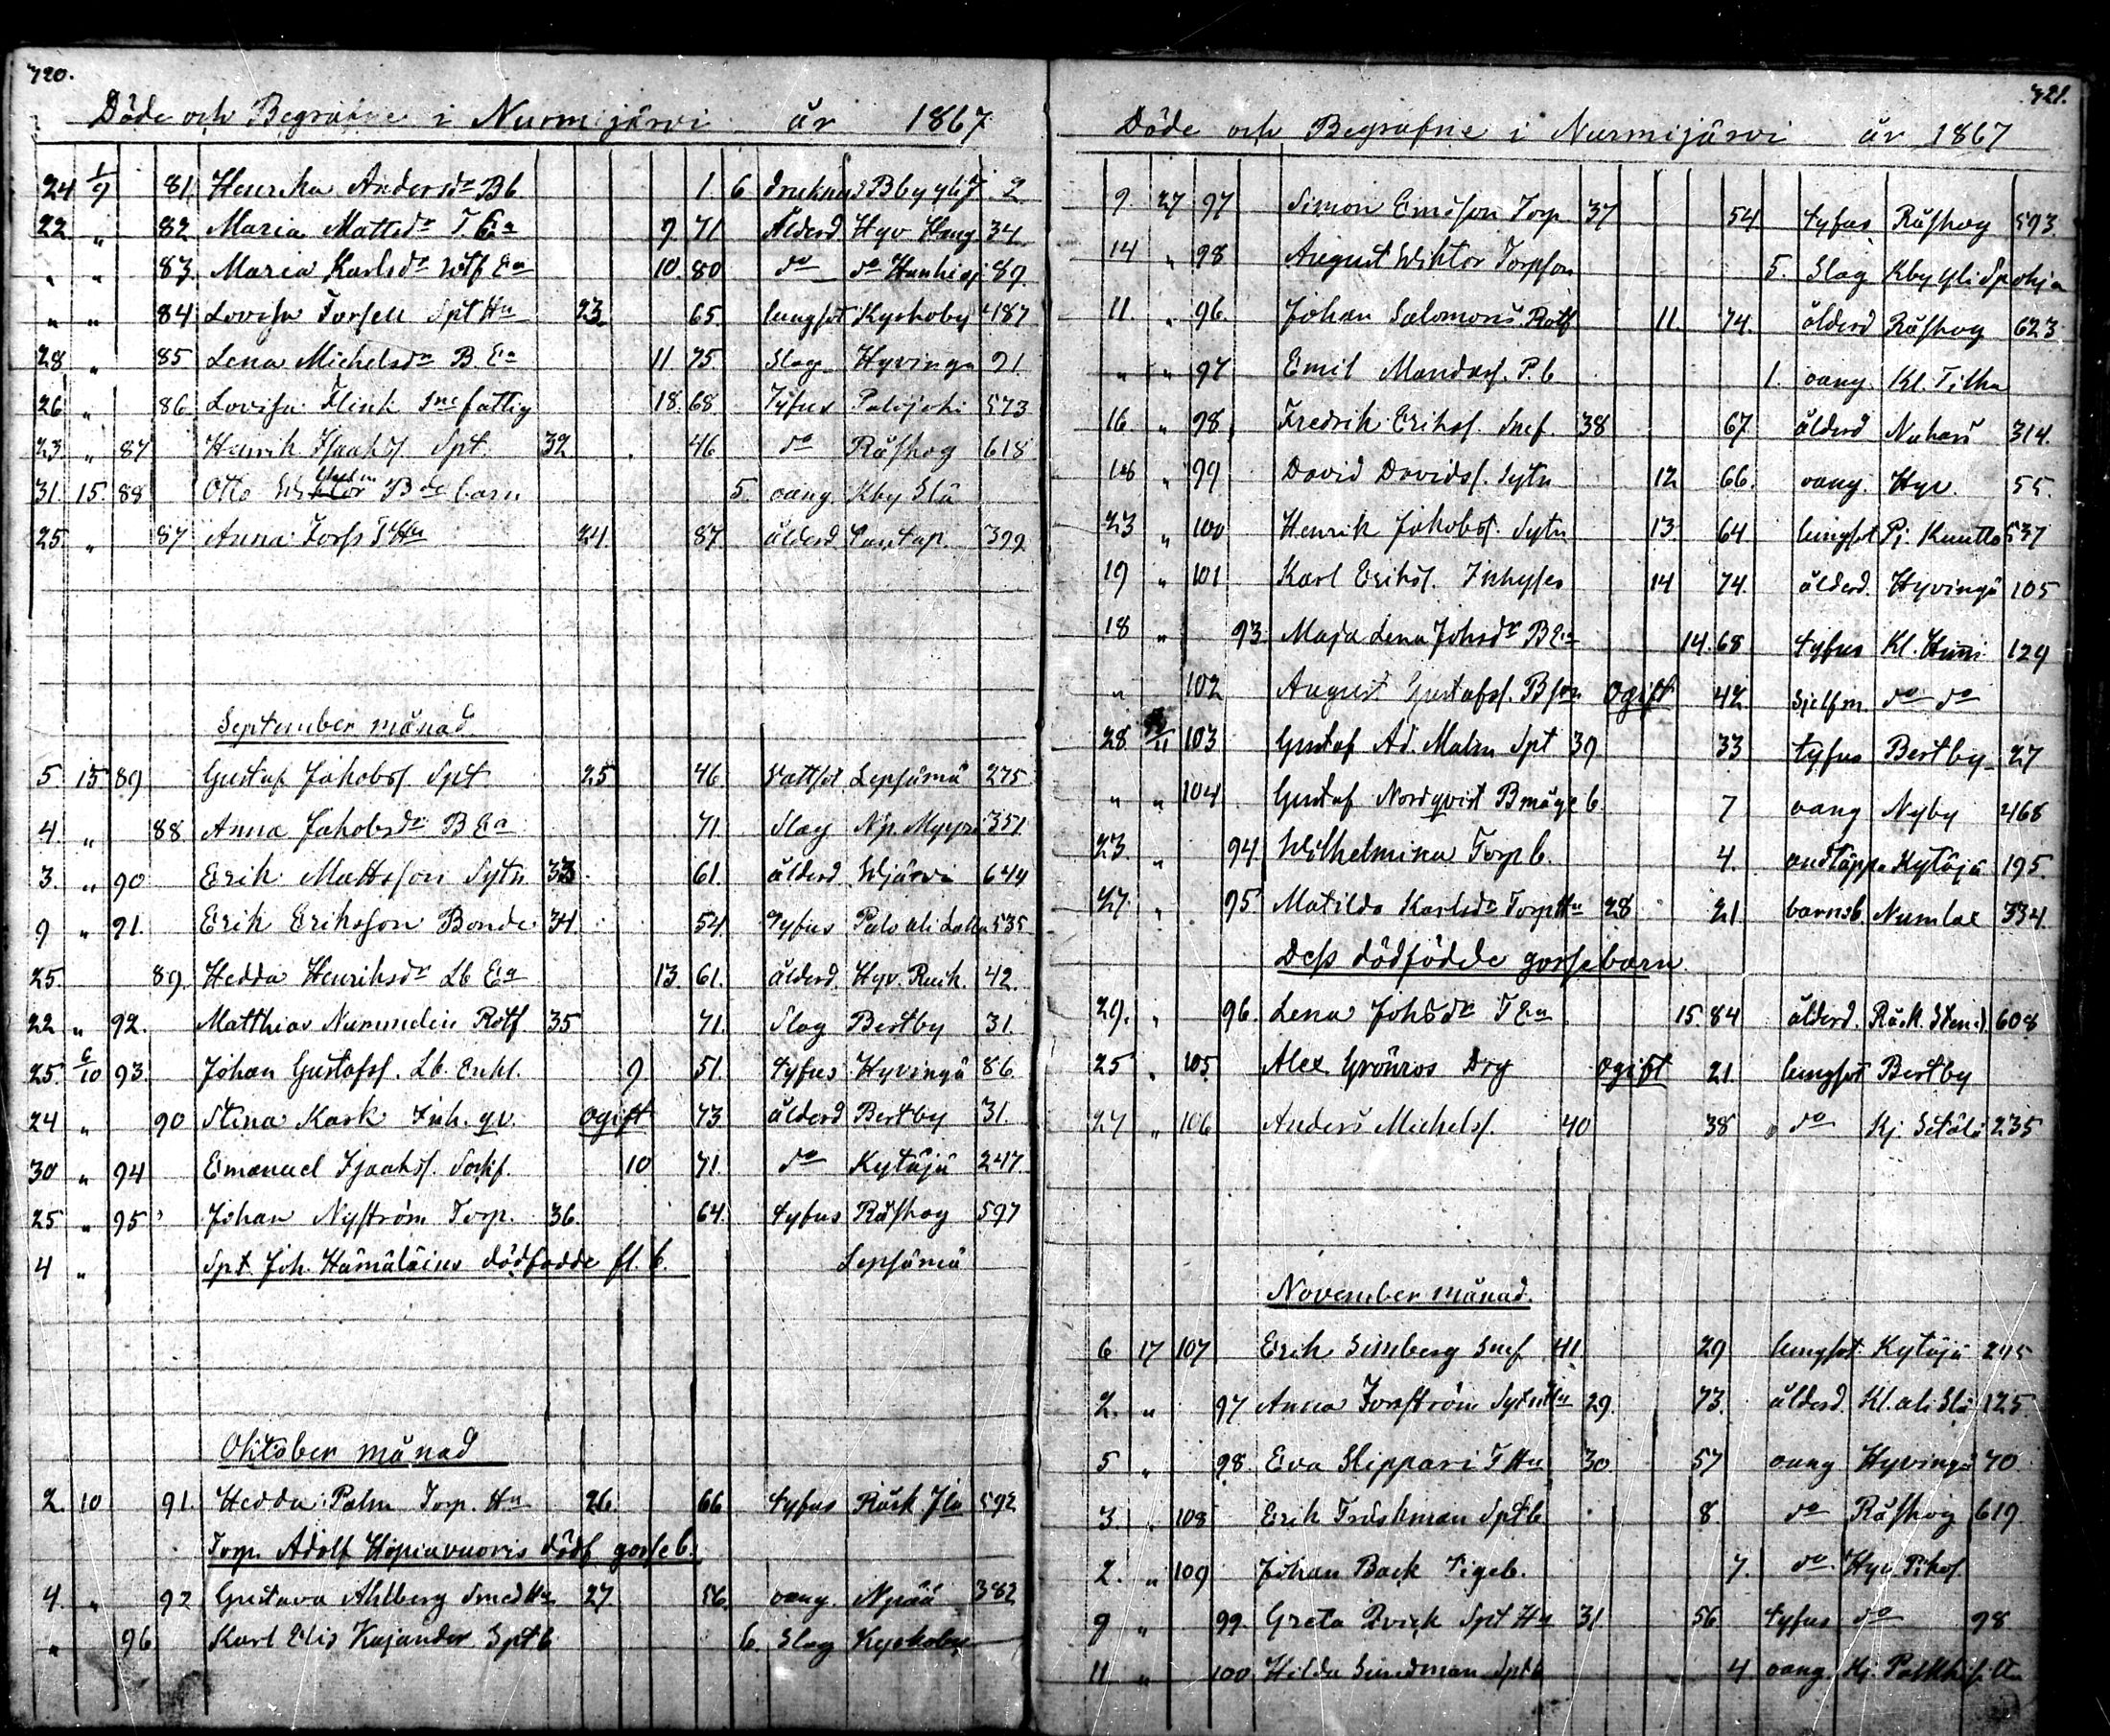 720.
Döde och Begrafne i Nurmijärvi år 1867
24 1/9 81 Henrika Andersdr Bb. 1. 6 druknad Bby yli 2
22 " 82 Maria Mattsdr T. Ea 9. 71 ålderd Hyv 34
" " 83. Maria Karlsdr Ea 10. 80 do do 89
" " 84 Lovisa Forsell Spt Hu 23 65. lungsot Kyrkoby 487
28 " 85. Lena Michelsdr B. Ea 11 75. Slag Hyvinge 91
26 " 86. Lovisa Flink fattig 18. 68. Tyfus Palojoki 573
23 " 87 Henrik Isaaks Spt. 32 46 do Råskog 618
31. 15. 88 Otto barn 5. oang. Kby
25. " 87 Anna Forss T Hu 24. 87. ålderd 399
September månad
5. 15. 89 Gustaf Jakobss Spt 25 46. Vattsot Lepsämä 275
4. " 88. Anna Jakobsdr B Ea 71. Slag Np. 351
3. " 90 Erik Mattsson Sytn 33 61. ålderd 644
9 " 91. Erik Eriksson Bonde 34. 54. Tyfus Palo ali 535
25. 89. Hedda Henriksdr Lb Ea 13. 61. ålderd. Hyv. 42.
22 " 92. Matthias Nummelin Rotf 35 71. Slag Bertby 31.
25. 6/10 93. Johan Gustafss. Lb. Enkl. 9 51. tyfus Hyvingä 86
24 " 90 Stina Kask Inh. qv. ogift 73 ålderd Bertby 31.
30 " 94 Emanuel Isaakss. 10 71. do Kytäjä 247
25 " 95 Johan Nyström Torp. 36. 64. tyfus Råskog 597
4 " Spt. Joh. Hämäläinens dödfödde fl. b. Lepsämä
Oktober månad
2. 10 91. Hedda Palm Torp. Hu 26. 66 tyfus Råsk 592
Torp. Adolf dödf gosse b.
4. " 92 Gustava Ahlberg Smed Hu 27 56. oang. 382
" 96 Karl Elis Kajander Spt b 6. Slag Kyrkoby
721.
Döde och Begrafne i Nurmijärvi år 1867
9 27 97 Simon Torp 37 54 tyfus Råskog 593.
14 " 98 August Wiktor Torpson 5. Slag Kby yli
11. " 96 Johan Salomons Rotf 11 74. ålderd Råskog 623
" " 97 Emil P. b 1. oang. Kl.
16 " 98 Fredrik Eriks. 38 67. ålderd 314.
18 " 99 David Davidss. Sytn 12 66. oang. Hyv. 55.
23 " 100 Henrik Jakobss. Sytn 13 64 lungsot Pj. 537
19 " 101 Karl Erikss. Inhyses 14 74. ålderd. Hyvingä 105
18 " 93. Maja Lena Johsdr B Ea 14. 68 tyfus Kl. 129
" 102 August Gustafss. B son ogift 42 Sjelfm. do do
28 11 103 Gustaf Ad. Malm Spt 39 33 tyfus Bertby 27
" " 104 Gustaf Nordqvist b 7 oang Nyby 468
23. " 94 Wilhelmina Torp b. 4. andtäppa Kytäjä 195.
27. " 95 Matilda Karlsdr Torp Hu 28 21 barnsb. Numlax 334.
Dess dödfödde gossebarn
29. " 96. Lena Johsdr T Ea 15. 84 ålderd. Råsk. 608
25 " 105 Alex Grönros Drg ogift 21. lungsot Bertby
27 " 106 Anders Michelss. 40 38 do Kj. Setälä 235
November månad.
6 17 107 Erik 41 29 lungsot Kytäjä 245
2. " 97 Anna Forsström Hu 29. 73. ålderd. Kl. ali 125.
5 " 98. Eva Skippari T Hu 30 57 oang Hyvingä 70
3. " 108 Erik Spt b. 8 do Råskog 619
2. " 109 Johan Back Pigeb. 7. do Hyv
9 " 99. Greta Qvick Spt Hu 31. 56 tyfus do 98
11 " 100. Hilda Sundman Spt b 4 oang. Kj.